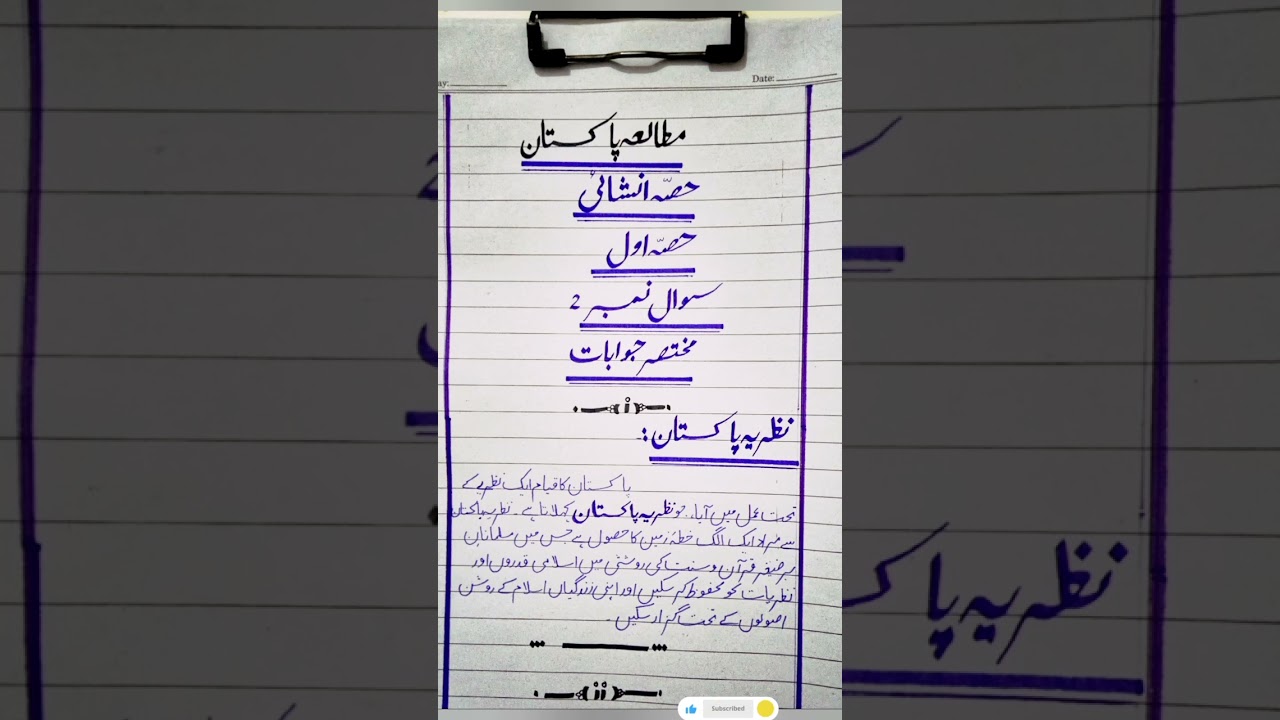 ay:
Date:
مطالعہ پاکستان
حصّہ انشائیٔ
حصّہ اول
سوال نمبر 2
مختصر جوابات
i
نظریہ پاکستان:
پاکستان کا قیام ایک نظریے کے
تحت عمل میں آیا۔ جو نظریہ پاکستان کہلاتا ہے۔ نظریہ پاکستان
سے مراد ایک الگ خطہ زمین کا حصول ہے جس میں مسلمانان
برصغیر قرآن و سنت کی روشنی میں اسلامی قدروں اور
نظریات کو محفوظ کر سکیں اور اپنی زندگیاں اسلام کے روشن
اصولوں کے تحت گزار سکیں۔
ii
Subscribed
2
نظریہ پاک